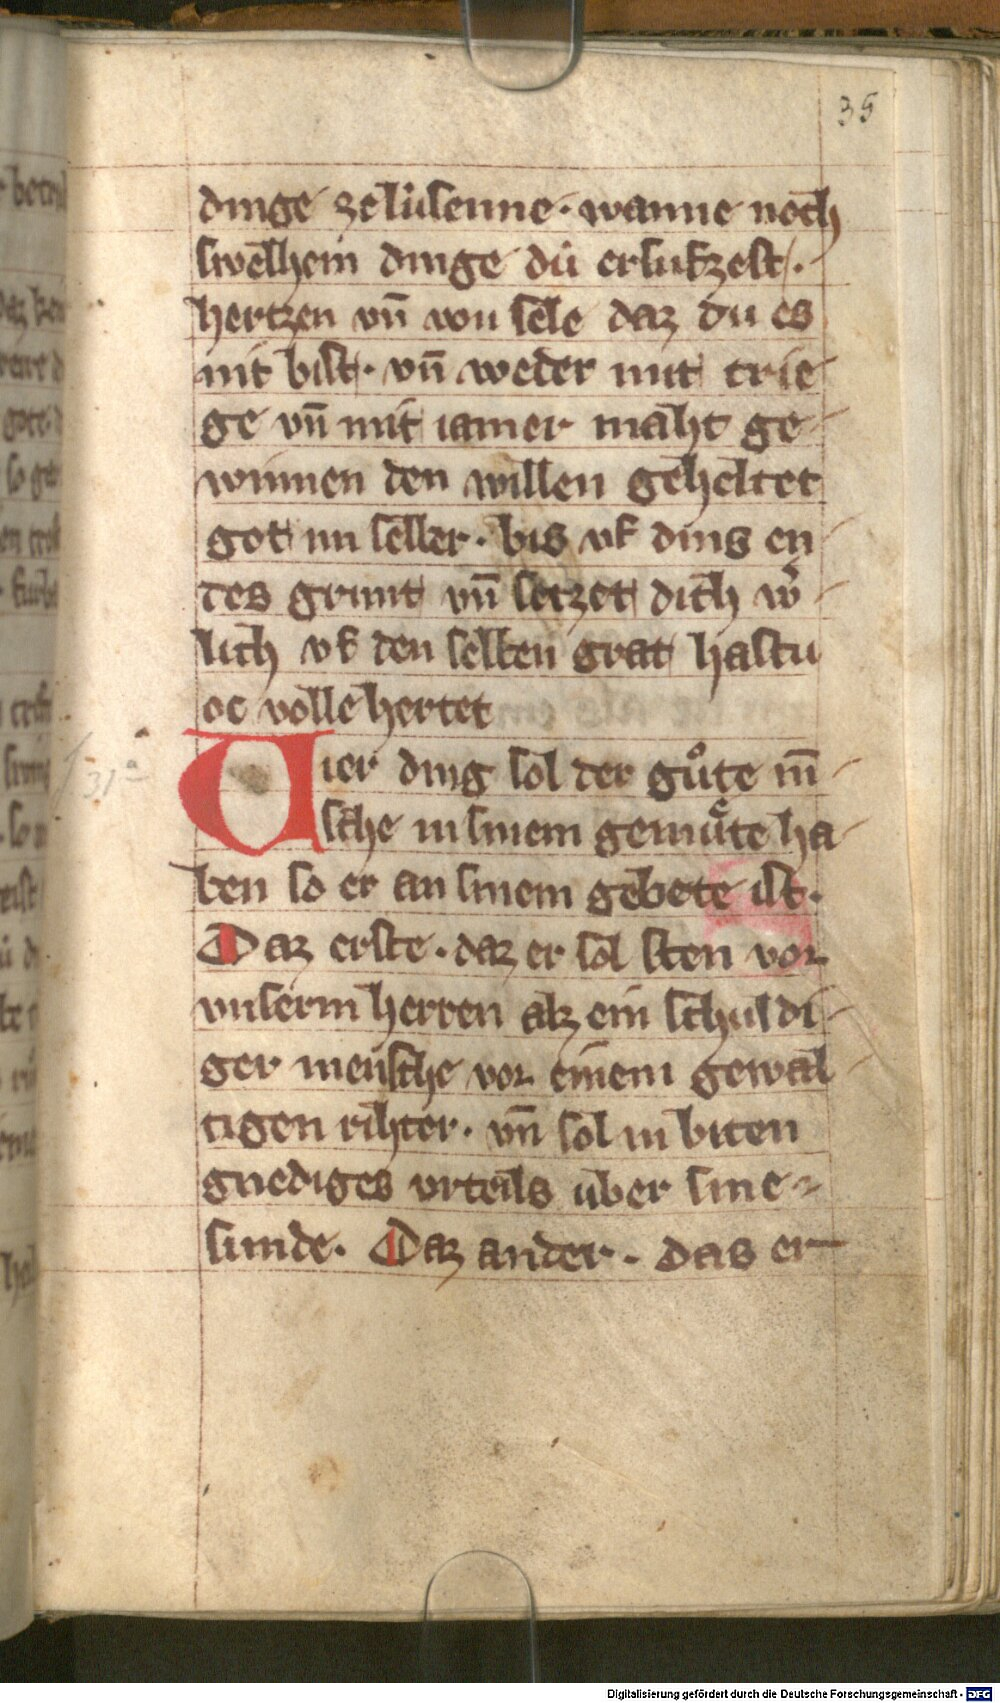 35
dinge zelúsenne · wanne noch
swelhem dinge dú ersufzest ·
hertzen vn̄ von sele daz du es
nit bist · vn̄ weder mit trie
ge vn̄ mit iamer maht ge
winnen den willen geheltet
got im selber · bis vf dins en
des grunt vn̄ setzet dich w̓
lich vf den selben grat hastu
oc volle hertet
Vier ding sol der gůte m̄
sche in sinem gemůte ha
ben so er an sinem gebete ist ·
Daz erste · daz er sol sten vor
vnserm herren alz ein schuldi
ger mensche vor einem gewal
tigen rihter · vn̄ sol in biten
gnediges vrteils uber sine
sunde · Daz ander · das er
31ᵃ
Digitalisierung gefördert durch die Deutsche Forschungsgemeinschaft - DFG